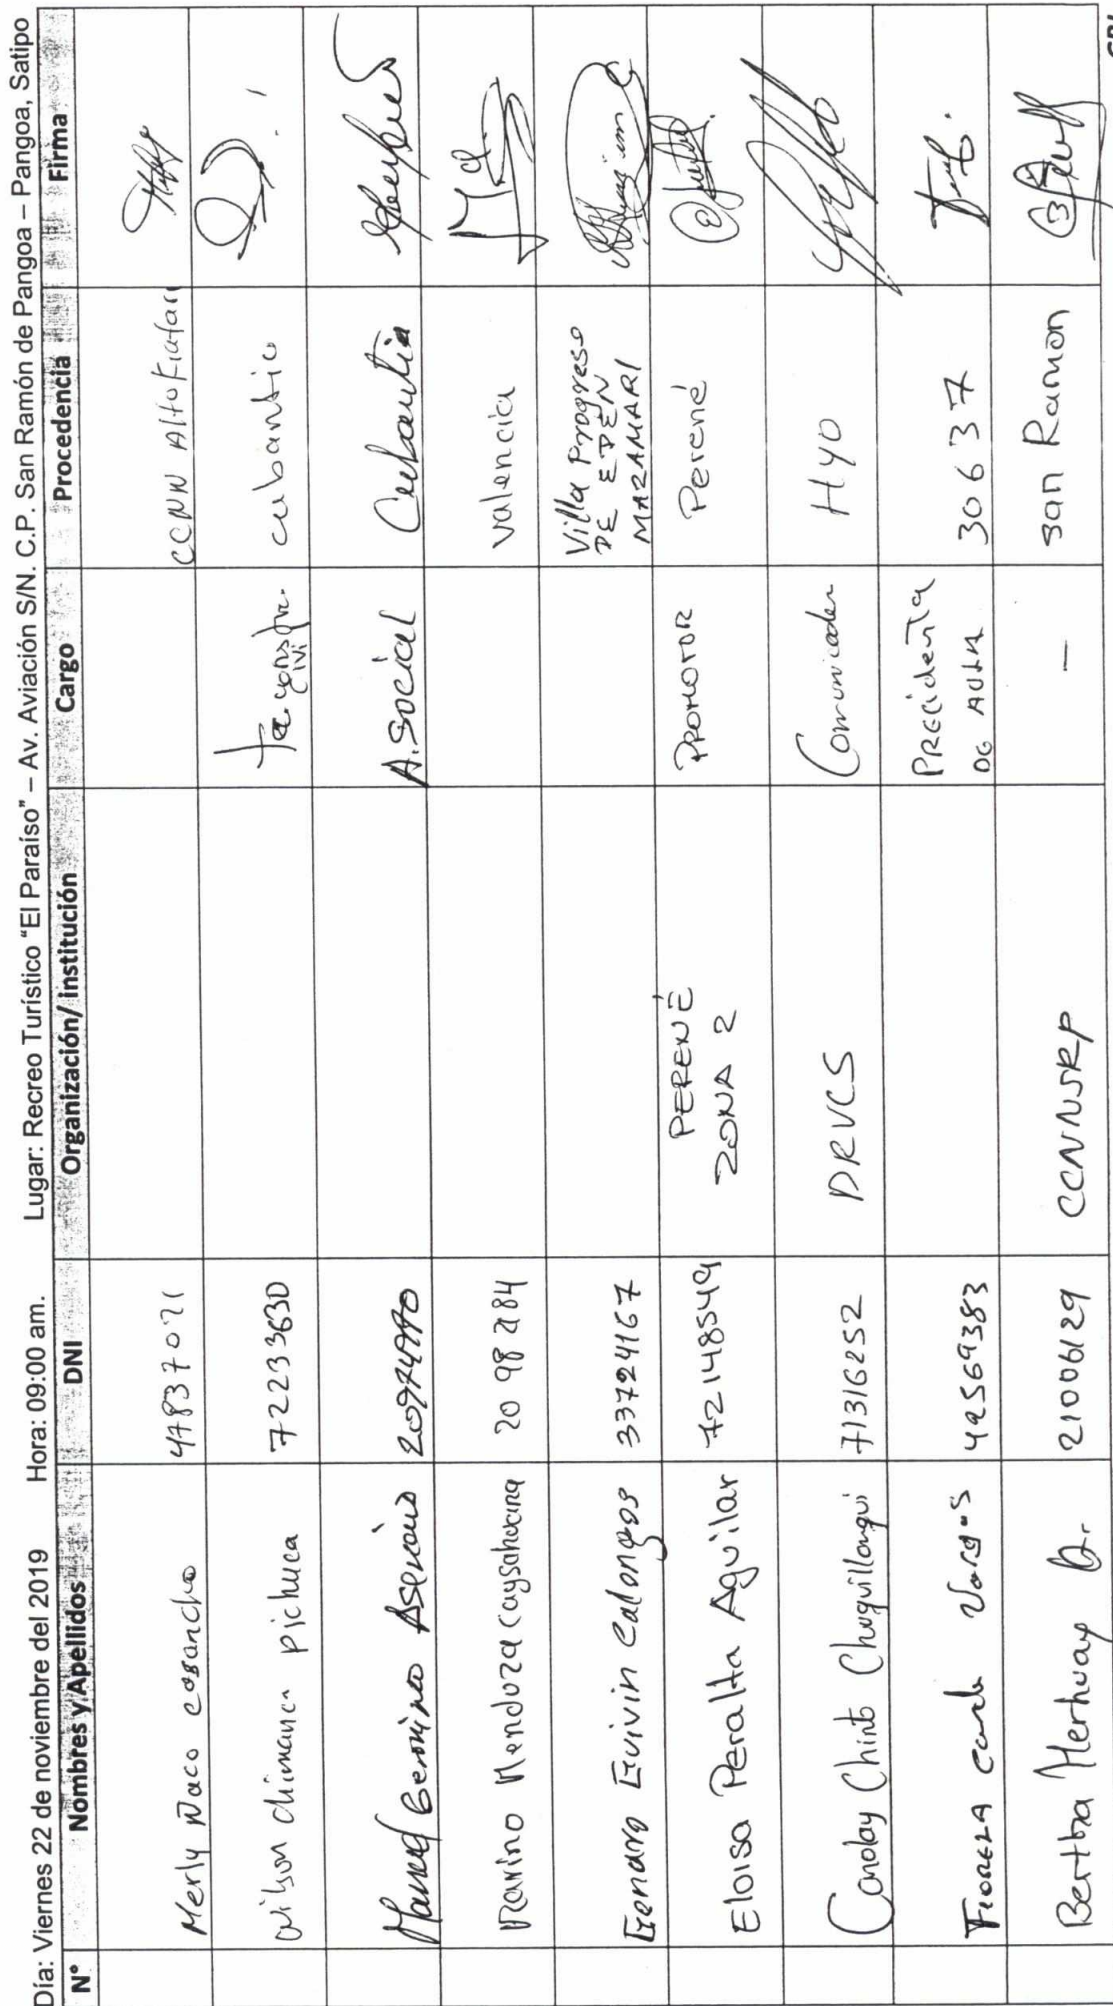 Día: Viernes 22 de noviembre del 2019 Hora: 09:00 am. Lugar: Recreo Turístico "El Paraíso" – Av. Aviación S/N. C.P. San Ramón de Pangoa – Pangoa, Satipo
N° Nombres y Apellidos DNI Organización/ institución Cargo Procedencia Firma
Merly 47837021 CCNN
Wilson chimanca pichuca 72233630 cubantia
Manuel Asencios A. Social Cubantia
Marino Mendoza 20 98 2184 valencia
Genaro Calongos 33724167 Villa Progreso
DE EDEN
MAZAMARI
Eloisa Peralta Aguilar 72148549 PERENÉ
ZONA 2 PROMOTOR Perené
Chinto Chuquillanqui 71316252 DRVCS Comunicador HYO
Vargas 42569383 PRECidenTa
DE AULA 30637
Bertha 21006129 CCNNSRP – san Ramon